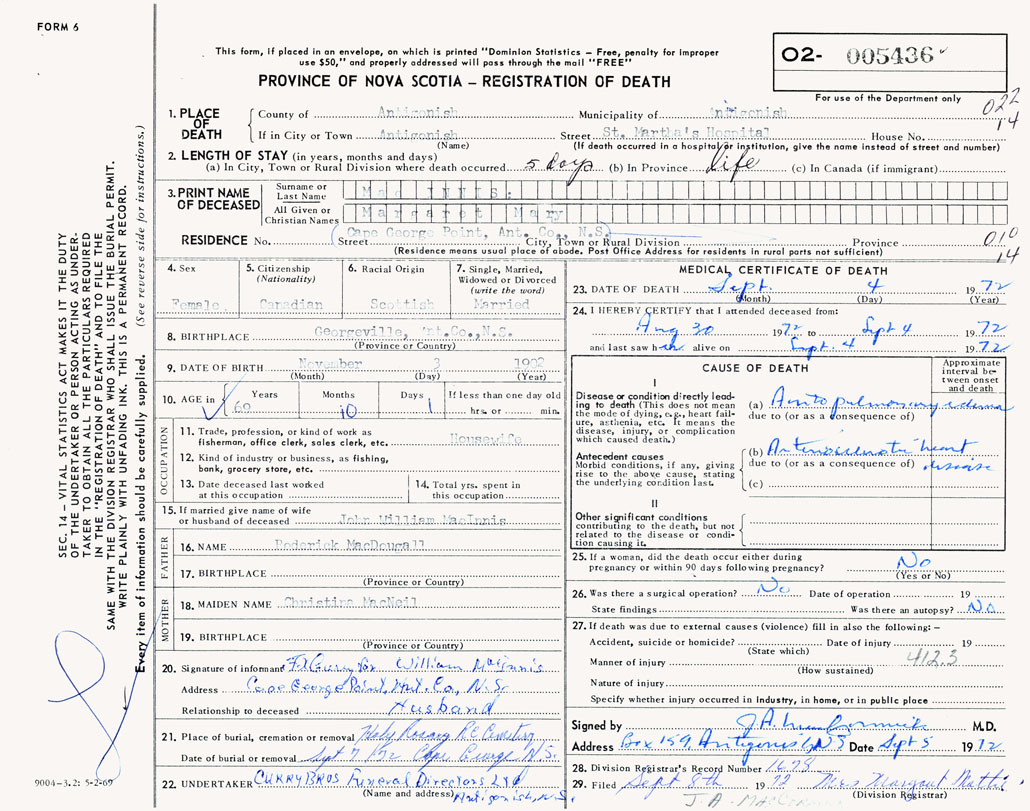 FORM 6
This form, if placed in an envelope, on which is printed "Dominion Statistics — Free, penalty for improper
use $50," and properly addressed will pass through the mail "FREE"
PROVINCE OF NOVA SCOTIA — REGISTRATION OF DEATH
O2- 005436
For use of the Department only
022
14
1. PLACE OF DEATH
County of Antigonish Municipality of Antigonish
If in City or Town Antigonish Street St. Martha's Hospital House No.
(Name) (If death occurred in a hospital or institution, give the name instead of street and number)
2. LENGTH OF STAY (in years, months and days)
(a) In City, Town or Rural Division where death occurred 5 days (b) In Province life (c) In Canada (if immigrant)
3. PRINT NAME OF DECEASED
Surname or Last Name Mac INNIS:
All Given or Christian Names Margaret Mary
RESIDENCE No. Street Cape George Point, Ant. Co., N.S. City, Town or Rural Division Province
(Residence means usual place of abode. Post Office Address for residents in rural parts not sufficient)
010
14
4. Sex
Female
5. Citizenship
(Nationality)
Canadian
6. Racial Origin
Scottish
7. Single, Married,
Widowed or Divorced
(write the word)
Married
8. BIRTHPLACE Georgeville, Ant.Co.,N.S.
(Province or Country)
9. DATE OF BIRTH November 3 1902
(Month) (Day) (Year)
10. AGE in Years 69 Months 10 Days 1 If less than one day old
hrs. or min.
OCCUPATION
11. Trade, profession, or kind of work as
fisherman, office clerk, sales clerk, etc. Housewife
12. Kind of industry or business, as fishing,
bank, grocery store, etc.
13. Date deceased last worked
at this occupation
14. Total yrs. spent in
this occupation
15. If married give name of wife
or husband of deceased John William MacInnis
FATHER
16. NAME Roderick MacDougall
17. BIRTHPLACE
(Province or Country)
MOTHER
18. MAIDEN NAME Christina MacNeil
19. BIRTHPLACE
(Province or Country)
20. Signature of informant for William MacInnis
Address Cape George Point, Ant. Co, N.S.
Relationship to deceased Husband
21. Place of burial, cremation or removal Holy Rosary RC Cemetery
Date of burial or removal Sept 7 Cape George N.S.
22. UNDERTAKER CURRY BROS Funeral Directors Ltd
(Name and address) Antigonish, N.S.
MEDICAL CERTIFICATE OF DEATH
23. DATE OF DEATH Sept. 4 1972
(Month) (Day) (Year)
24. I HEREBY CERTIFY that I attended deceased from:
Aug 30 1972 to Sept 4 1972
and last saw her alive on Sept. 4 1972
CAUSE OF DEATH
Approximate
interval be-
tween onset
and death
I
Disease or condition directly lead-
ing to death (This does not mean
the mode of dying, e.g., heart fail-
ure, asthenia, etc. It means the
disease, injury, or complication
which caused death.)
(a) Acute pulmonary edema
due to (or as a consequence of)
Antecedent causes
Morbid conditions, if any, giving
rise to the above cause, stating
the underlying condition last.
(b) Arteriosclerotic heart
due to (or as a consequence of) disease
(c)
II
Other significant conditions
contributing to the death, but not
related to the disease or condi-
tion causing it.
25. If a woman, did the death occur either during
pregnancy or within 90 days following pregnancy? No
(Yes or No)
26. Was there a surgical operation? No Date of operation 19
State findings Was there an autopsy? No
27. If death was due to external causes (violence) fill in also the following: —
Accident, suicide or homicide? Date of injury 19
(State which)
Manner of injury 412.3
(How sustained)
Nature of injury
Specify whether injury occurred in industry, in home, or in public place
Signed by J.A. MacCormick M.D.
Address Box 159, Antigonish NS Date Sept 5 1972
28. Division Registrar's Record Number
29. Filed Sept 8th 1972 Mrs Margaret
(Division Registrar)
J. A. MacCormick
SEC. 14 — VITAL STATISTICS ACT MAKES IT THE DUTY
OF THE UNDERTAKER OR PERSON ACTING AS UNDER-
TAKER TO OBTAIN ALL THE PARTICULARS REQUIRED
IN THE "REGISTRATION OF DEATH" AND TO FILE THE
SAME WITH THE DIVISION REGISTRAR WHO SHALL ISSUE THE BURIAL PERMIT.
WRITE PLAINLY WITH UNFADING INK. THIS IS A PERMANENT RECORD.
Every item of information should be carefully supplied. (See reverse side for instructions.)
9004-3.2: 5-2-69